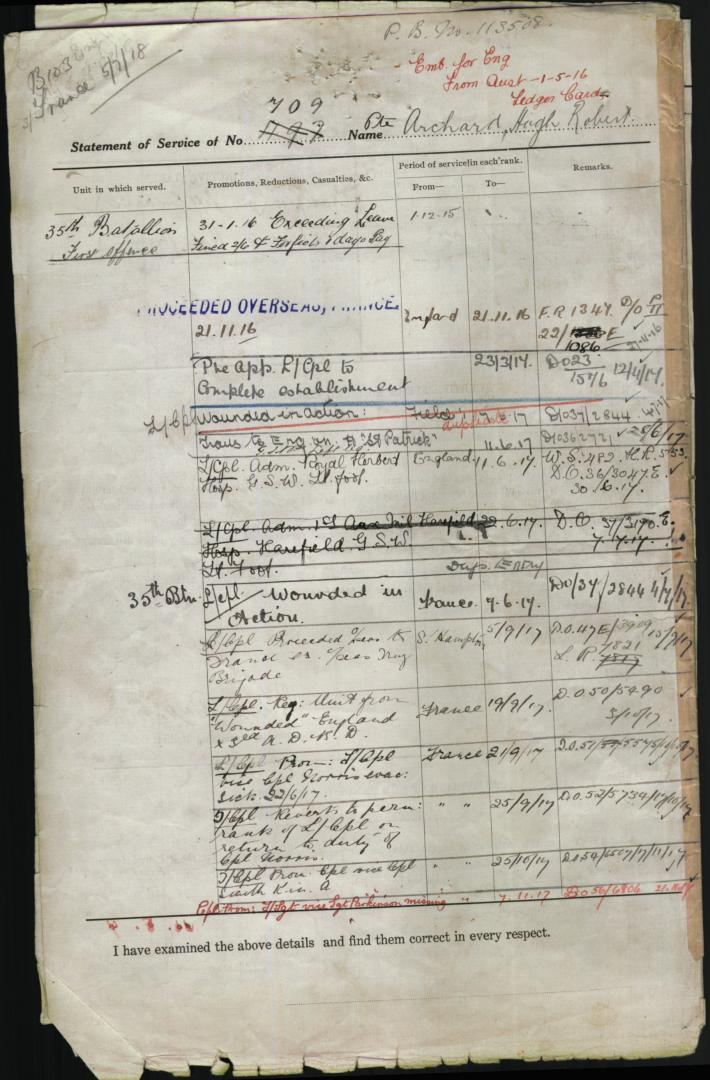 P. B. No. 113508
B103
France 5/7/18
Emb. for Eng
From Aust - 1-5-16
Ledger Card
709
Statement of Service of No. Name Pte Archard, Hugh Robert.
Period of service in each rank.
Unit in which served. Promotions, Reductions, Casualties, &c. From— To— Remarks.
35th Batallion 31-1-16 Exceeding Leave 1-12-15
First offence Fined 2/6 & Forfeits 2 days Pay
PROCEEDED OVERSEAS, FRANCE. England 21.11.16 F.R 1347 D/O
21.11.16 22/ E
1086 21-11-16
Pte App. L/Cpl to 23/3/17. DO23
Complete establishment 157/6 12/4/17.
L/Cpl Wounded in action: Field 7.6.17 D/O37/2844 4/7/17
duplicate
Trans to Eng "St Patrick" 11.6.17 D/O36 2721
L/Cpl. Adm. Royal Herbert England 11.6.17. W.S. 482. H.R.
Hosp. G.S.W. Lt. foot. D.O. 36/3047 E.
30.6.17.
L/Cpl. Adm. 1st Aux Harefield 22.6.17. D.O. 37/3190 E.
Hosp. Harefield G.S.W. 7.7.17.
Lt. Foot.
Dup. Entry
35th Btn. L/Cpl Wounded in France 7.6.17. DO/37/2844 4/7/17
Action.
L/Cpl Proceeded O/seas to S. Hampton 5/9/17 D.O. 47E/3909
France ex O/seas Trng L. R. 4821
Brigade
L/Cpl. Rej: Unit from France 19/9/17 D.O. 50/5290
"Wounded" England 3/10/17.
x 3rd A.D.B.D.
L/Cpl Prom: T/Cpl France 21/9/17
vice Cpl Norris evac:
sick. 22/6/17.
T/Cpl Reverts to perm: " " 25/9/17 D.O. 52/5734
rank of L/Cpl on
return to duty of
Cpl Norris.
T/Cpl Prom: Cpl vice Cpl " " 25/10/17 Do 54/6507/17/11/17
K in A
Cpl Prom: T/Sgt vice Sgt Parkinson missing " 7.11.17 Do 56/6806
I have examined the above details and find them correct in every respect.